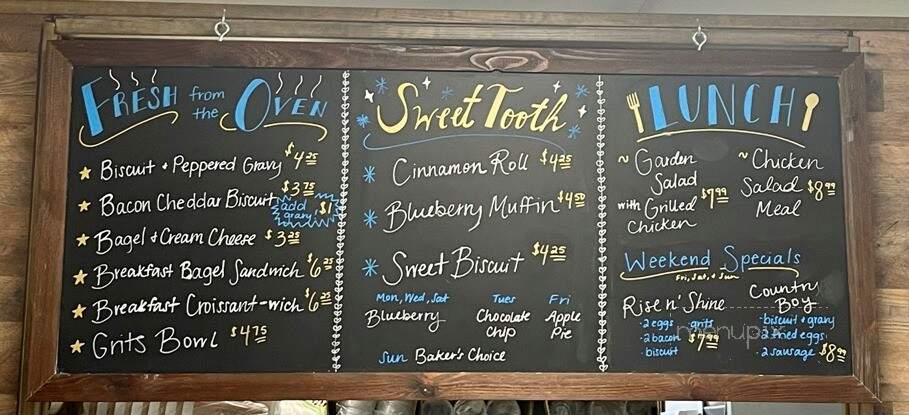 FRESH from the OVEN
Biscuit + Peppered Gravy $4.25
Bacon Cheddar Biscuit $3.75
add gravy $1
Bagel + Cream Cheese $3.25
Breakfast Bagel Sandwich $6.25
Breakfast Croissant-wich $6.25
Grits Bowl $4.75
Sweet Tooth
Cinnamon Roll $4.25
Blueberry Muffin $4.50
Sweet Biscuit $4.25
Mon, Wed, Sat
Blueberry
Tues
Chocolate
Chip
Fri
Apple
Pie
Sun Baker's Choice
LUNCH
~ Garden
Salad
with Grilled $7.99
Chicken
~ Chicken
Salad $8.99
Meal
Weekend Specials
Fri, Sat, + Sun
Rise n' Shine
- 2 eggs grits
- 2 bacon $7.99
- biscuit
Country
Boy
- biscuit + gravy
- 2 fried eggs
- 2 sausage $8.99
menupix